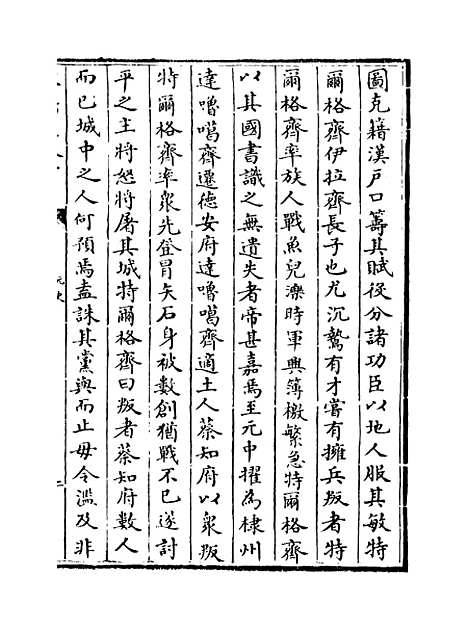 圖克籍漢戶口籌其賦役分諸功臣以地人服其敏特
爾格齊伊拉齊長子也尤沉鷙有才嘗有擁兵叛者特
爾格齊率族人戰魚兒濼時軍興簿檄繁急特爾格齊
以其國書識之無遺失者帝甚嘉焉至元中擢為棣州
達嚕噶齊遷德安府達嚕噶齊適土人蔡知府以衆叛
特爾格齊率衆先登冒矢石身被數創猶戰不已遂討
平之主將怒將屠其城特爾格齊曰叛者蔡知府數人
而已城中之人何預焉盍誅其黨與而止毋令濫及非
元史